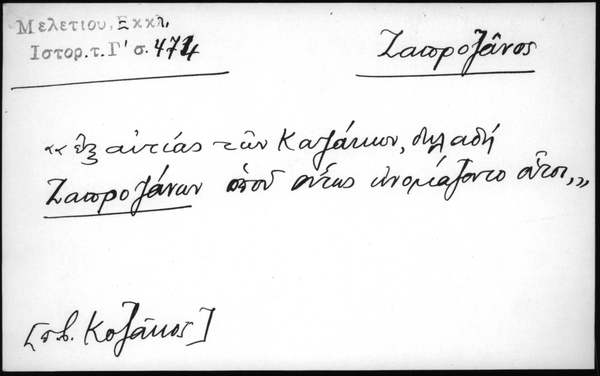 Μελετίου, Εκκλ.
Ιστορ. τ. Γ' σ. 474
Ζαπροζᾶνος
«ἐξ αἰτίας τῶν Καζάκων, δηλαδή
Ζαπροζάνων ὁποῦ οὕτως ὠνομάζοντο οὗτοι,»
[πβ. Κοζᾶκος]